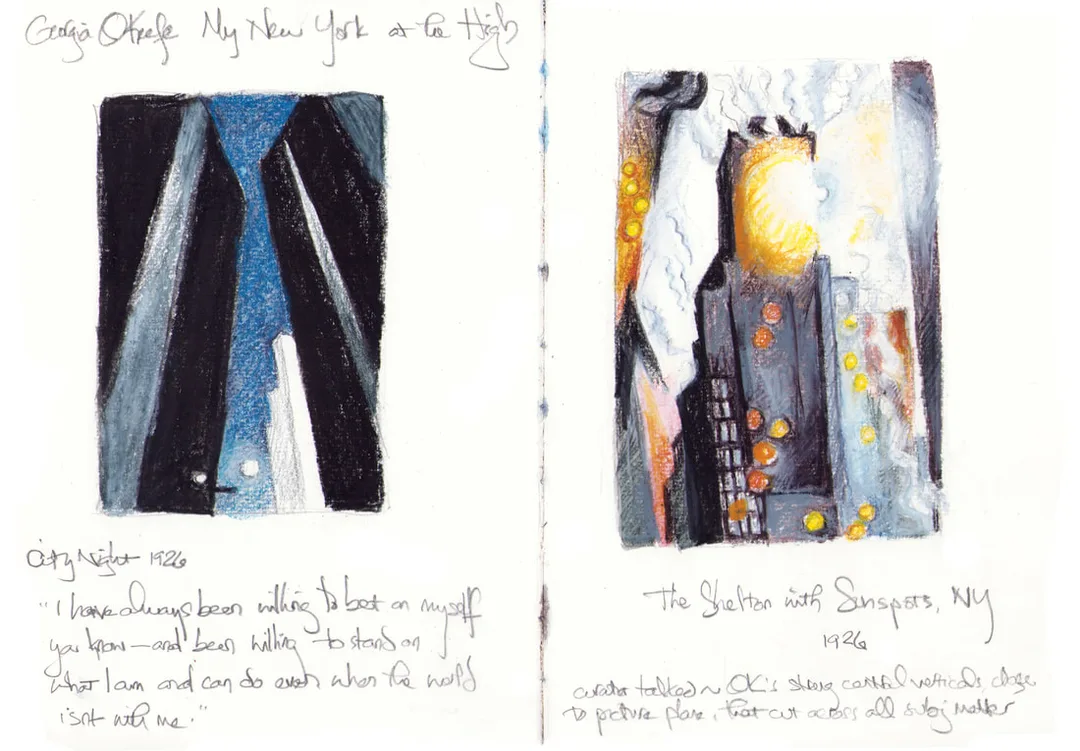 Georgia OKeefe My New York at the High
City Night 1926
"I have always been willing to bet on myself
you know—and been willing to stand on
what I am and can do even when the world
isn't with me."
The Shelton with Sunspots, NY
1926
curator talked ~ OK's strong central verticals, close
to picture plane, that cut across all subj matter